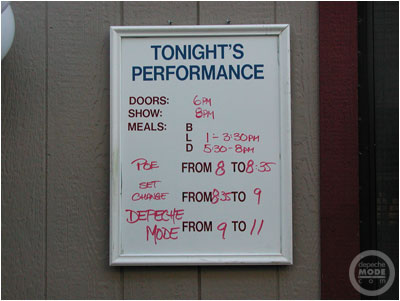 TONIGHT'S
PERFORMANCE
DOORS: 6PM
SHOW: 8PM
MEALS: B
L 1-3:30PM
D 5:30-8PM
POE FROM 8 TO 8:35
SET
CHANGE FROM 8:35 TO 9
DEPECHE
MODE FROM 9 TO 11
depeche
MODE
com